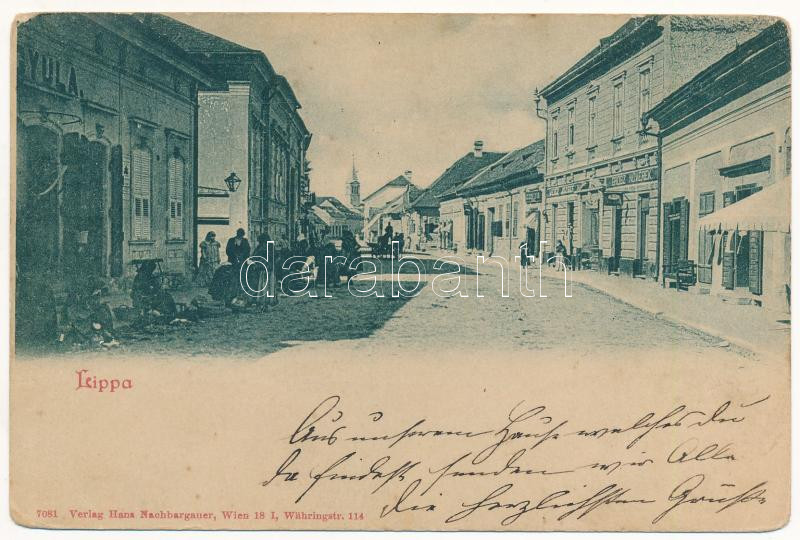 YULA.
darabanth
Lippa
Aus unserem Hause welches du
da findest senden wir Alle
die herzlichsten Grüsse
7081 Verlag Hans Nachbargauer, Wien 18 I, Währingstr. 114